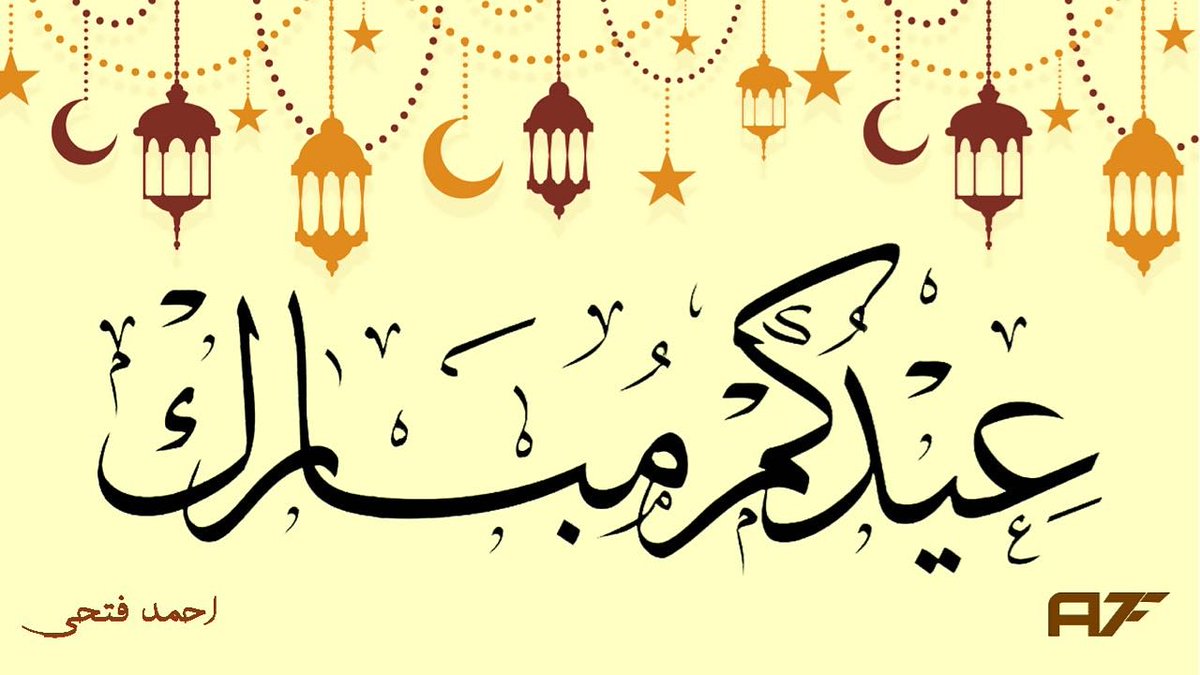 عِيْدُكُمْ مُبَارَك
احمد فتحى
AF